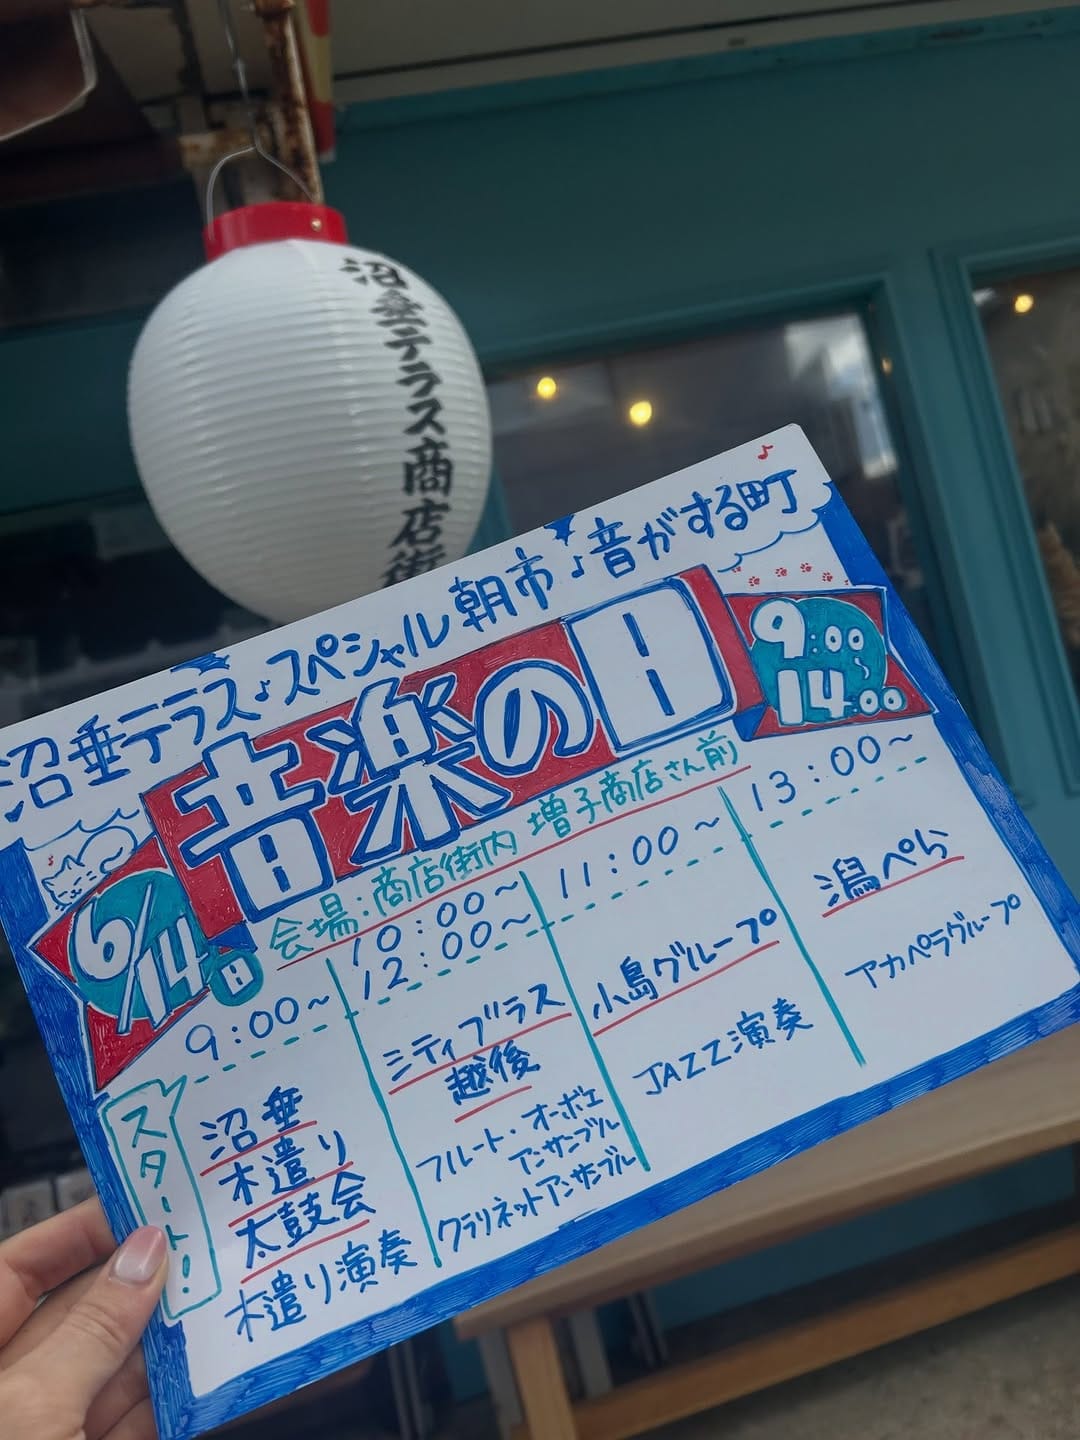 沼垂テラス商店街
沼垂テラス♪スペシャル朝市♪音がする町
音楽の日
9:00~14:00
6/14日
会場:商店街内 増子商店さん前
スタート!
9:00~
沼垂
木遣り
太鼓会
木遣り演奏
10:00~
12:00~
シティブラス
越後
フルート・オーボエ
アンサンブル
クラリネットアンサンブル
11:00~
小島グループ
JAZZ演奏
13:00~
潟ぺら
アカペラグループ